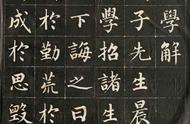 學解
子先生晨
學招諸生
下誨之曰
於勤荒於
成於思毀